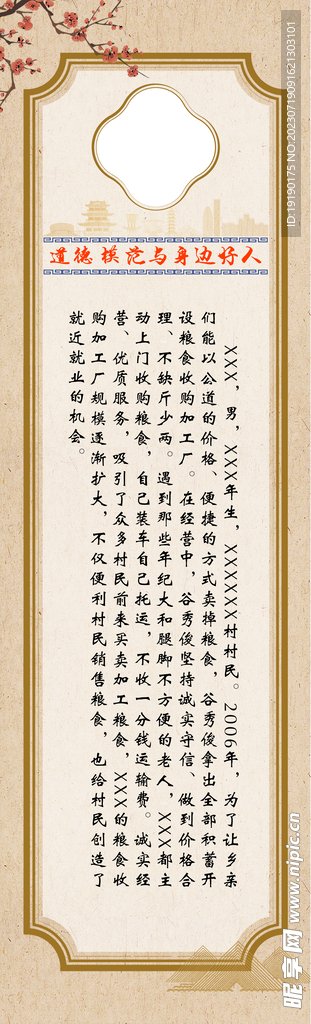 道德模范与身边好人
XXX，男，XXX年生，XXXXXX村村民。2006年，为了让乡亲
们能以公道的价格、便捷的方式卖掉粮食，谷秀俊拿出全部积蓄开
设粮食收购加工厂。在经营中，谷秀俊坚持诚实守信、做到价格合
理、不缺斤少两。遇到那些年纪大和腿脚不方便的老人，XXX都主
动上门收购粮食，自己装车自己托运，不收一分钱运输费。诚实经
营、优质服务，吸引了众多村民前来买卖加工粮食，XXX的粮食收
购加工厂规模逐渐扩大，不仅便利村民销售粮食，也给村民创造了
就近就业的机会。
ID:19190175 NO:20230719091621303101
昵享网 www.nipic.cn